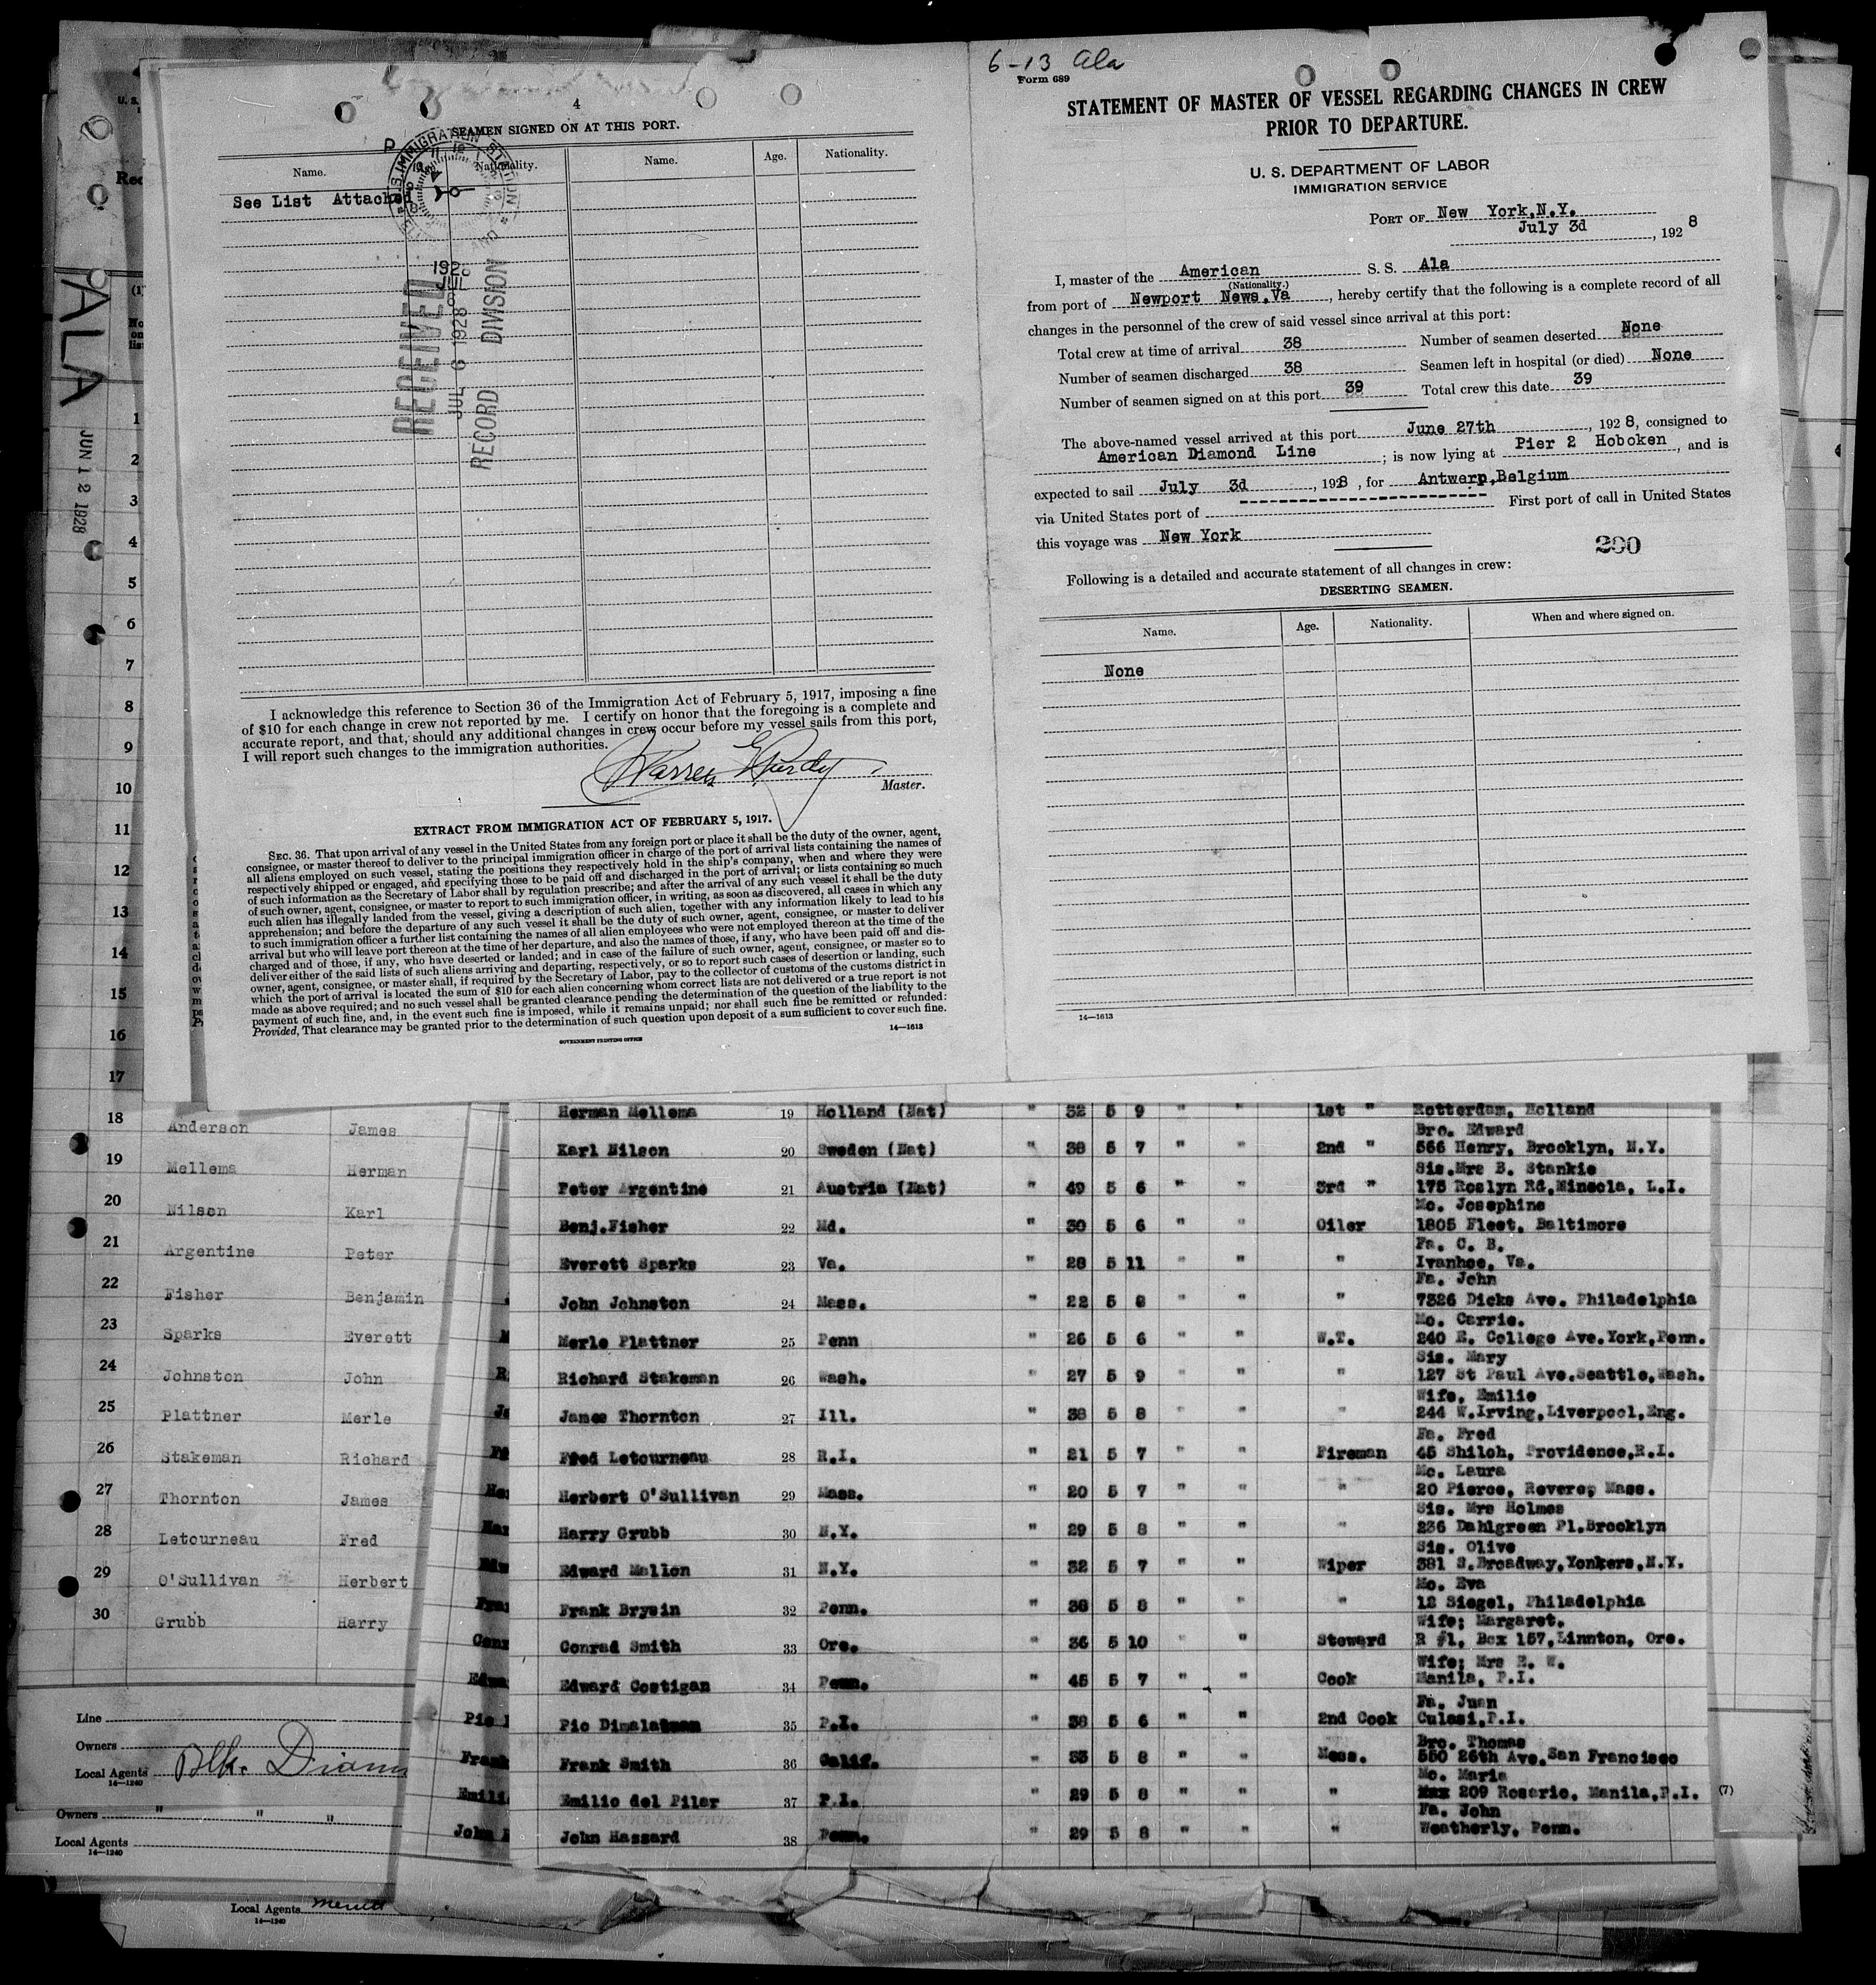 4
SEAMEN SIGNED ON AT THIS PORT.
Name. Nationality. Name. Age. Nationality.
See List Attached
U.S. IMMIGRATION STATION
192
JUL
RECEIVED
JUL 6 1928
RECORD DIVISION
I acknowledge this reference to Section 36 of the Immigration Act of February 5, 1917, imposing a fine
of $10 for each change in crew not reported by me. I certify on honor that the foregoing is a complete and
accurate report, and that, should any additional changes in crew occur before my vessel sails from this port,
I will report such changes to the immigration authorities.
Warren Purdy
Master.
EXTRACT FROM IMMIGRATION ACT OF FEBRUARY 5, 1917.
SEC. 36. That upon arrival of any vessel in the United States from any foreign port or place it shall be the duty of the owner, agent,
consignee, or master thereof to deliver to the principal immigration officer in charge of the port of arrival lists containing the names of
all aliens employed on such vessel, stating the positions they respectively hold in the ship's company, when and where they were
respectively shipped or engaged, and specifying those to be paid off and discharged in the port of arrival; or lists containing so much
of such information as the Secretary of Labor shall by regulation prescribe; and after the arrival of any such vessel it shall be the duty
of such owner, agent, consignee, or master to report to such immigration officer, in writing, as soon as discovered, all cases in which any
such alien has illegally landed from the vessel, giving a description of such alien, together with any information likely to lead to his
apprehension; and before the departure of any such vessel it shall be the duty of such owner, agent, consignee, or master to deliver
to such immigration officer a further list containing the names of all alien employees who were not employed thereon at the time of the
arrival but who will leave port thereon at the time of her departure, and also the names of those, if any, who have been paid off and dis-
charged and of those, if any, who have deserted or landed; and in case of the failure of such owner, agent, consignee, or master so to
deliver either of the said lists of such aliens arriving and departing, respectively, or so to report such cases of desertion or landing, such
owner, agent, consignee, or master shall, if required by the Secretary of Labor, pay to the collector of customs of the customs district in
which the port of arrival is located the sum of $10 for each alien concerning whom correct lists are not delivered or a true report is not
made as above required; and no such vessel shall be granted clearance pending the determination of the question of the liability to the
payment of such fine, and, in the event such fine is imposed, while it remains unpaid; nor shall such fine be remitted or refunded:
Provided, That clearance may be granted prior to the determination of such question upon deposit of a sum sufficient to cover such fine.
14—1613
GOVERNMENT PRINTING OFFICE
6-13 Ala
Form 689
STATEMENT OF MASTER OF VESSEL REGARDING CHANGES IN CREW
PRIOR TO DEPARTURE.
U. S. DEPARTMENT OF LABOR
IMMIGRATION SERVICE
PORT OF New York,N.Y.
July 3d, 1928
I, master of the American S. S. Ala
(Nationality.)
from port of Newport News.Va, hereby certify that the following is a complete record of all
changes in the personnel of the crew of said vessel since arrival at this port:
Total crew at time of arrival 38 Number of seamen deserted None
Number of seamen discharged 38 Seamen left in hospital (or died) None
Number of seamen signed on at this port 39 Total crew this date 39
The above-named vessel arrived at this port June 27th, 1928, consigned to
American Diamond Line; is now lying at Pier 2 Hoboken, and is
expected to sail July 3d, 1928, for Antwerp,Belgium
via United States port of First port of call in United States
this voyage was New York
200
Following is a detailed and accurate statement of all changes in crew:
DESERTING SEAMEN.
Name. Age. Nationality. When and where signed on.
None
14—1613
ALA
JUN 12 1928
1
2
3
4
5
6
7
8
9
10
11
12
13
14
15
16
17
18 Anderson James
19 Mellema Herman
20 Nilson Karl
21 Argentine Peter
22 Fisher Benjamin
23 Sparks Everett
24 Johnston John
25 Plattner Merle
26 Stakeman Richard
27 Thornton James
28 Letourneau Fred
29 O'Sullivan Herbert
30 Grubb Harry
Line
Owners
Local Agents Blk. Diam
14—1240
Owners " " "
Local Agents
14—1240
Local Agents
14—1240
Herman Mellema 19 Holland (Nat) " 32 5 9 " " 1st " Rotterdam, Holland
Bro. Edward
Karl Nilson 20 Sweden (Nat) " 38 5 7 " " 2nd " 566 Henry, Brooklyn, N.Y.
Sis.Mrs B. Stankie
Peter Argentine 21 Austria (Nat) " 49 5 6 " " 3rd " 175 Roslyn Rd,Mineola, L.I.
Mo. Josephine
Benj.Fisher 22 Md. " 30 5 6 " " Oiler 1805 Fleet, Baltimore
Fa. C. B.
Everett Sparks 23 Va. " 28 5 11 " " " Ivanhoe, Va.
Fa. John
John Johnston 24 Mass. " 22 5 8 " " " 7326 Dicks Ave. Philadelphia
Mo. Carrie.
Merle Plattner 25 Penn " 26 5 6 " " W.T. 240 E. College Ave.York,Penn.
Sis. Mary
Richard Stakeman 26 Wash. " 27 5 9 " " " 127 St Paul Ave.Seattle,Wash.
Wife, Emilie
James Thornton 27 Ill. " 38 5 8 " " " 244 W.Irving,Liverpool,Eng.
Fa. Fred
Fred Letourneau 28 R.I. " 21 5 7 " " Fireman 45 Shiloh, Providence,R.I.
Mo. Laura
Herbert O'Sullivan 29 Mass. " 20 5 7 " " " 20 Pierce, Revere, Mass.
Sis. Mrs Holmes
Harry Grubb 30 N.Y. " 29 5 8 " " " 236 Dahlgreen Pl.Brooklyn
Sis. Olive
Edward Mallon 31 N.Y. " 32 5 7 " " Wiper 381 S.Broadway,Yonkers,N.Y.
Mo. Eva
Frank Brysin 32 Penn. " 38 5 8 " " " 12 Siegel, Philadelphia
Wife; Margaret.
Conrad Smith 33 Ore. " 36 5 10 " " Steward R #1, Box 157,Linnton, Ore.
Wife; Mrs E. W.
Edward Costigan 34 Penn. " 45 5 7 " " Cook Manila, P.I.
Fa. Juan
Pio 35 P.I. " 38 5 6 " " 2nd Cook Culasi,P.I.
Bro. Thomas
Frank Smith 36 Calif. " 33 5 8 " " Mess. 550 26th Ave.San Francisco
Mo. Maria
Emilio del Pilar 37 P.I. " 29 5 8 " " " 209 Rosario, Manila,P.I. (7)
Fa. John
John Hassard 38 Penn. " 29 5 8 " " " Weatherly, Penn.